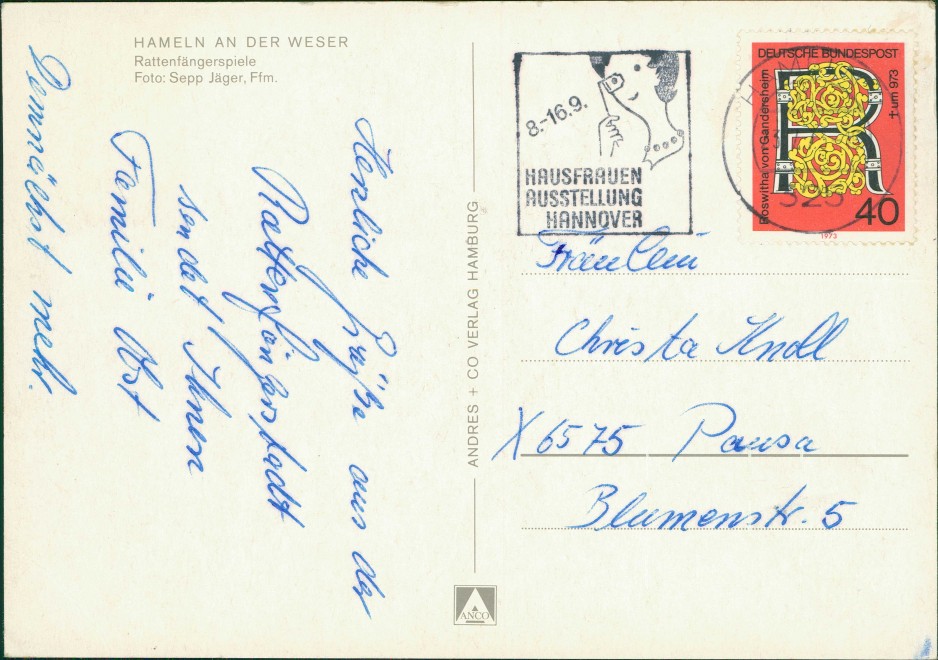 HAMELN AN DER WESER
Rattenfängerspiele
Foto: Sepp Jäger, Ffm.
Herzliche Grüße aus der
Rattenfängerstadt
sendet Ihnen
Familie Obst
Demnächst mehr.
ANDRES + CO VERLAG HAMBURG
ANCO
8.-16.9.
HAUSFRAUEN
AUSSTELLUNG
HANNOVER
DEUTSCHE BUNDESPOST
Roswitha von Gandersheim
† um 973
R
40
1973
325
Fräulein
Christa Knoll
X 6575 Pausa
Blumenstr. 5